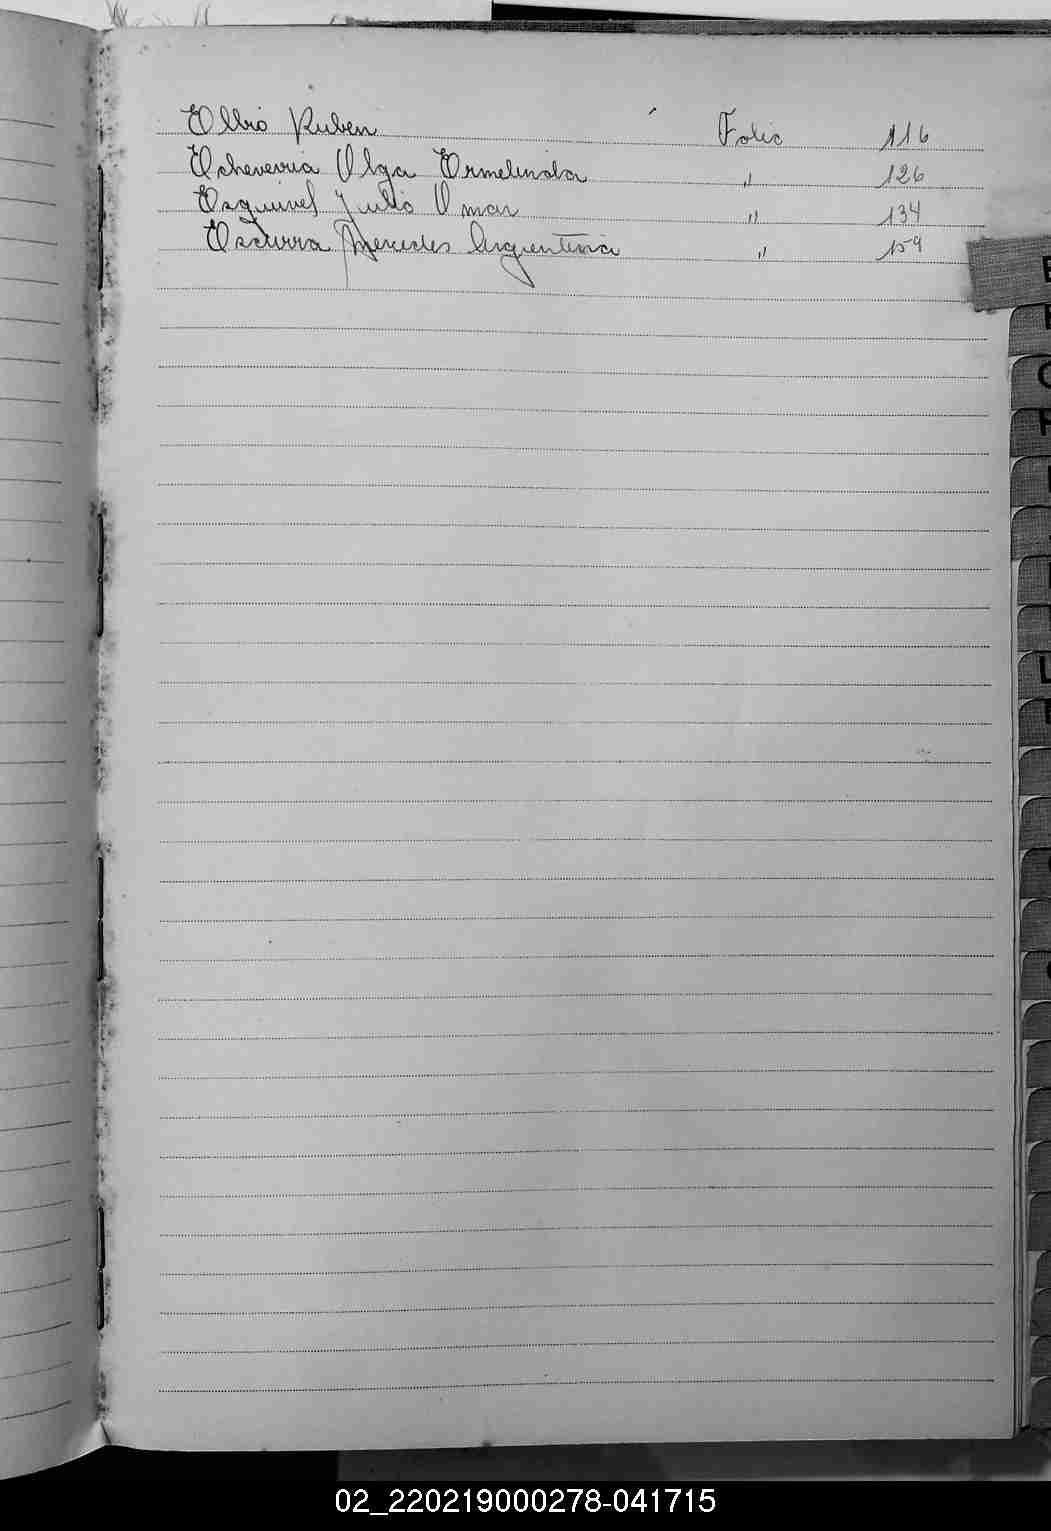 Elbio Ruben Folio 116
Echeverria Olga Ermelinda " 126
Esquivel Julio Omar " 134
Escurra Mercedes Argentina " 159
E
L
02_220219000278-041715